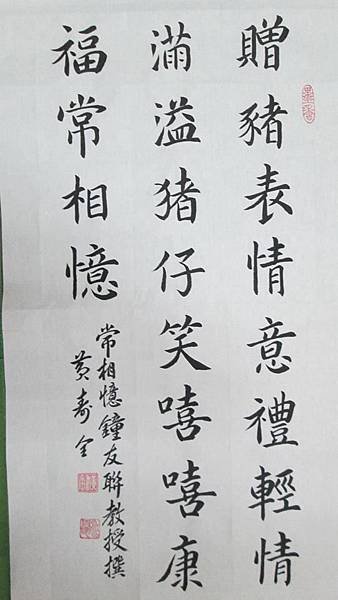 贈豬表情意禮輕情
滿溢猪仔笑嘻嘻康
福常相憶
常相憶鐘友聯教授撰
黃壽全